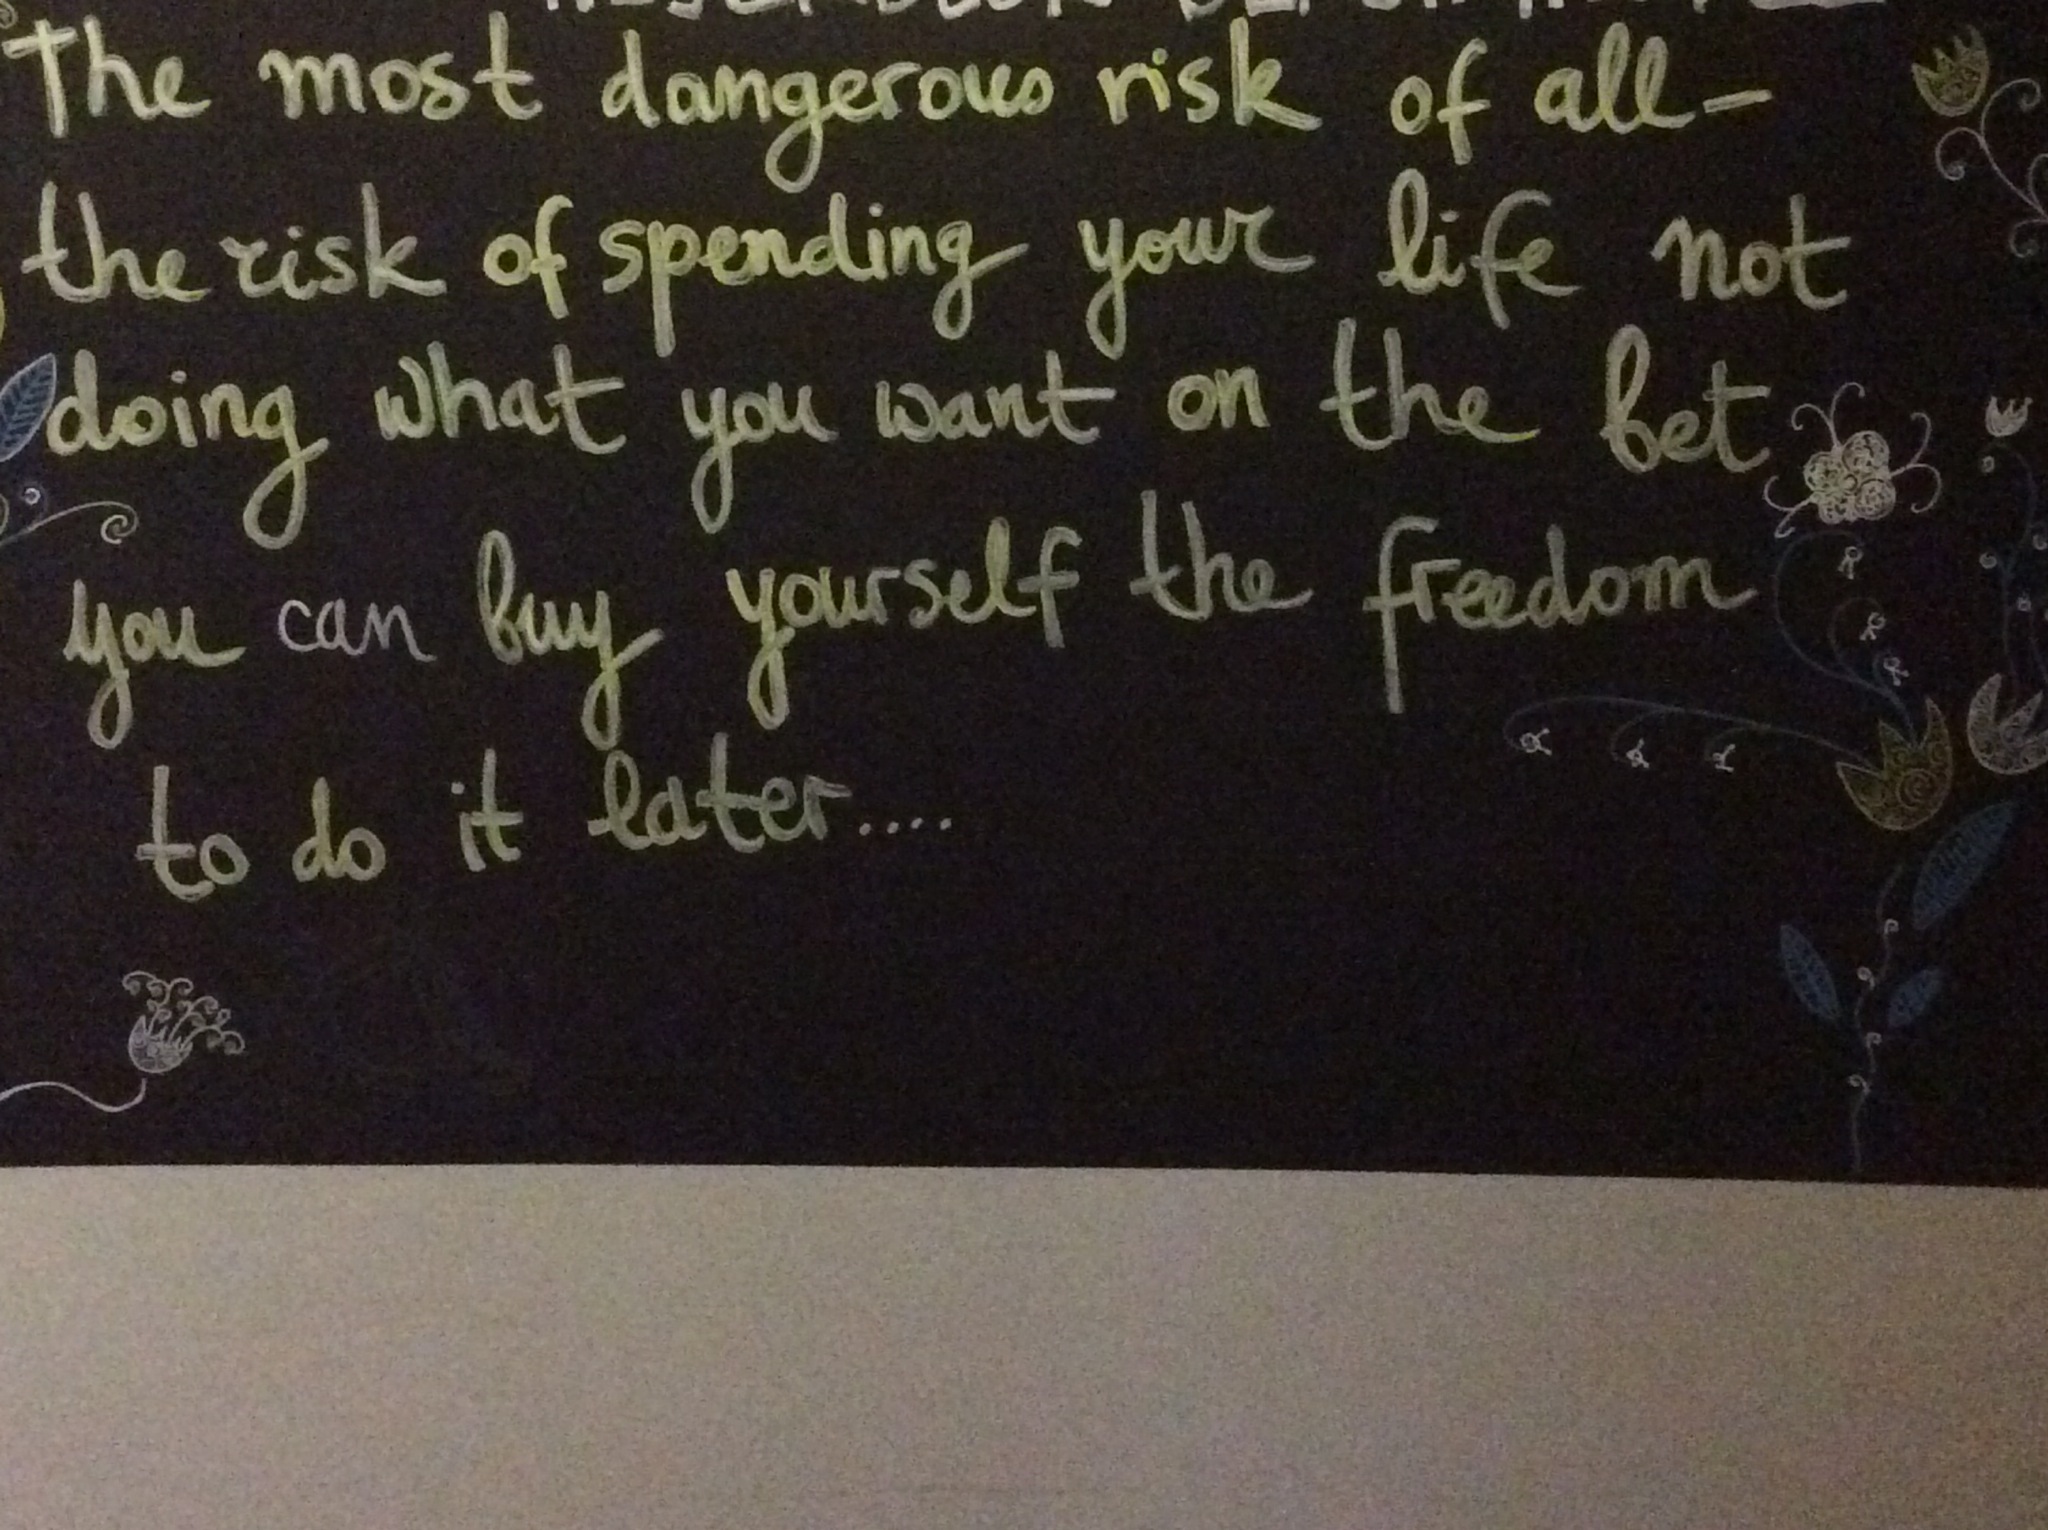 The most dangerous risk of all-
the risk of spending your life not
doing what you want on the bet
you can buy yourself the freedom
to do it later....